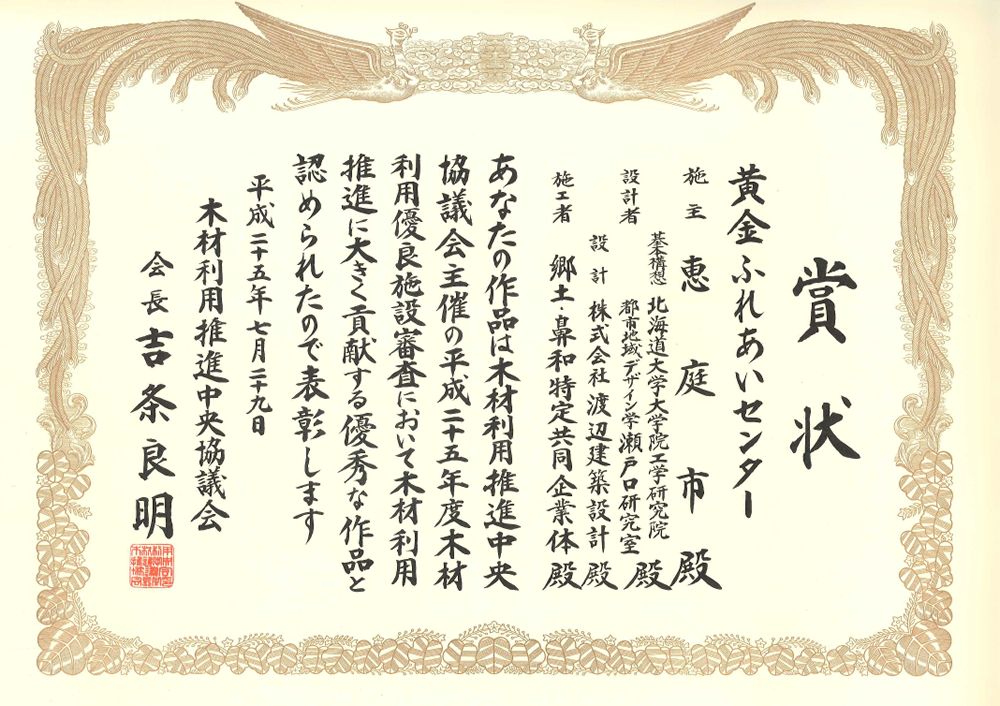 賞状
黄金ふれあいセンター
施主 恵庭市殿
設計者 基本構想 北海道大学大学院工学研究院
都市地域デザイン学瀬戸口研究室殿
設計 株式会社渡辺建築設計殿
施工者 郷土・鼻和特定共同企業体殿
あなたの作品は木材利用推進中央
協議会主催の平成二十五年度木材
利用優良施設審査において木材利用
推進に大きく貢献する優秀な作品と
認められたので表彰します
平成二十五年七月二十九日
木材利用推進中央協議会
会長 吉条良明